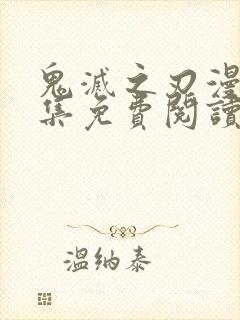 鬼滅之刃漫
集免費閱讀
溫纳泰